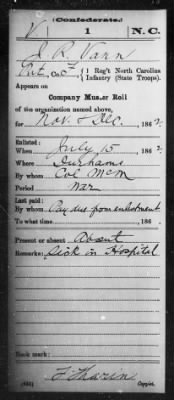 (Confederate.)
V 1 N.C.
J R Vann
Pvt, Co. F, 1 Reg't North Carolina
Infantry (State Troops).
Appears on
Company Muster Roll
of the organization named above,
for Nov. & Dec., 1862
Enlisted:
When July 15, 1862
Where Durhams
By whom Col McM
Period War
Last paid:
By whom Pay due from enlistment
To what time , 186
Present or absent Absent
Remarks: Sick in Hospital
Book mark:
Copyist.